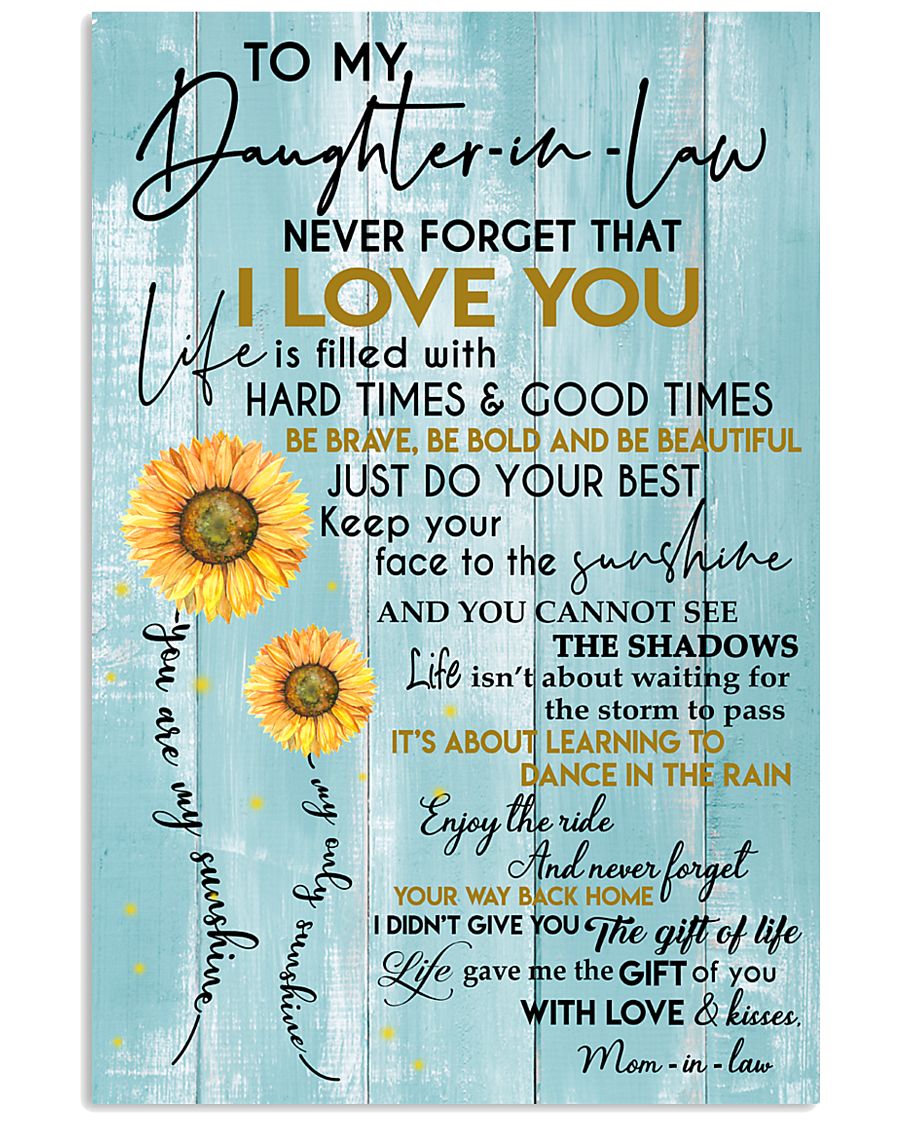 TO MY
Daughter-in-Law
NEVER FORGET THAT
I LOVE YOU
Life is filled with
HARD TIMES & GOOD TIMES
BE BRAVE, BE BOLD AND BE BEAUTIFUL
JUST DO YOUR BEST
Keep your
face to the sunshine
AND YOU CANNOT SEE
THE SHADOWS
Life isn't about waiting for
the storm to pass
IT'S ABOUT LEARNING TO
DANCE IN THE RAIN
Enjoy the ride
And never forget
YOUR WAY BACK HOME
I DIDN'T GIVE YOU The gift of life
Life gave me the GIFT of you
WITH LOVE & kisses,
Mom-in-law
you are my sunshine
my only sunshine